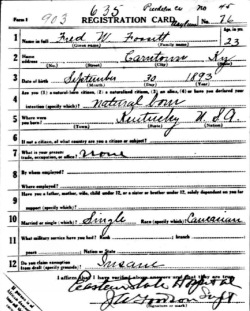 Form 1 903 635 Precinct No 45
REGISTRATION CARD No. 76
1 Name in full Fred W. Age, in yrs.
(Given name) (Family name) 23
2 Home address Ky
(No.) (Street) (City) (State)
3 Date of birth September 30 1893
(Month) (Day) (Year)
4 Are you (1) a natural-born citizen, (2) a naturalized citizen, (3) an alien, (4) or have you declared your
intention (specify which)? natural born
5 Where were you born? Kentucky U.S.A.
(Town) (State) (Nation)
6 If not a citizen, of what country are you a citizen or subject?
7 What is your present trade, occupation, or office? none
8 By whom employed?
Where employed?
9 Have you a father, mother, wife, child under 12, or a sister or brother under 12, solely dependent on you for
support (specify which)?
10 Married or single (which)? Single Race (specify which)? Caucasian
11 What military service have you had? Rank branch
years Nation or State
12 Do you claim exemption from draft (specify grounds)? Insane
I affirm that I have verified above answers and that they are true.
Eastern State Hospital
Supt
(Signature or mark)